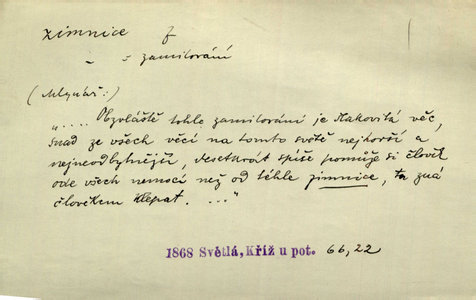 zimnice f
~ s zamilování
(Mlynář:)
".... Obzvláště tohle zamilování je taková věc,
snad ze všech věcí na tomto světě nejhorší a
nejneodbytnější, desetkrát spíše pomůže si člověk
ode všech nemocí než od téhle zimnice, ta zná
člověkem klepat. ..."
1868 Světlá, Kříž u pot. 66,22